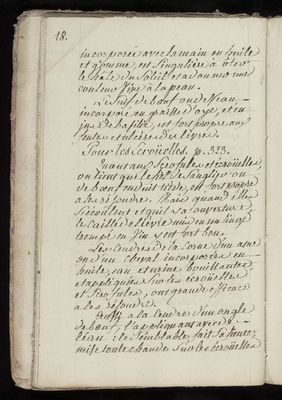 18.
incorporée avec la main en huile
et gomme, est singulière à ôter
le hâle du soleil et a donner une
couleur fine à la peau.
Le suif de bœuf ou de veau
incorporé en graisse d'oye, et en
jus de basilic, est fort propre aux
fentes et ulcères des lèvres.
Pour les Ecroüelles. p. 323.
Quant aux scrofules et ecroüelles,
on tient que le fiel de sanglier ou
de bœuf enduit tiède, est fort propre
a les résoudre. Mais quand elles
s'écoulent et qu'il y a ouverture
le caillé de lièvre mis en un linge
trempé en vin est fort bon.
Les cendres de la corne d'un asne
ou d'un cheval incorporées en
huile, eau et urine bouillantes
et appliquées sur les ecroüelles
et scrofules, ont grande efficace
a les résoudre.
aussy a la cendre d'un ongle
de bœuf, l'appliquant avec de
l'eau : le semblable fait sa fiente
mise toute chaude sur les ecroüelles